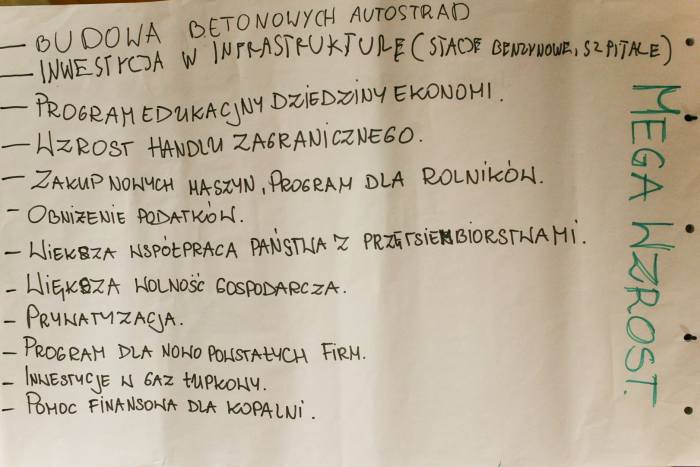 — BUDOWA BETONOWYCH AUTOSTRAD
— INWESTYCJA W INFRASTRUKTURĘ (STACJE BENZYNOWE, SZPITALE)
— PROGRAM EDUKACJNY DZIEDZINY EKONOMI.
— WZROST HANDLU ZAGRANICZNEGO.
— ZAKUP NOWYCH MASZYN, PROGRAM DLA ROLNIKÓW.
- OBNIŻENIE PODATKÓW.
- WIĘKSZA WSPÓŁPRACA PAŃSTWA Z PRZĘTSIENBIORSTWAMI.
- WIĘKSZA WOLNOŚĆ GOSPODARCZA.
- PRYWATYZACJA.
- PROGRAM DLA NOWO POWSTAŁYCH FIRM.
- INWESTYCJE W GAZ ŁUPKOWY.
- POMOC FINANSOWA DLA KOPALNI.
MEGA WZROST.